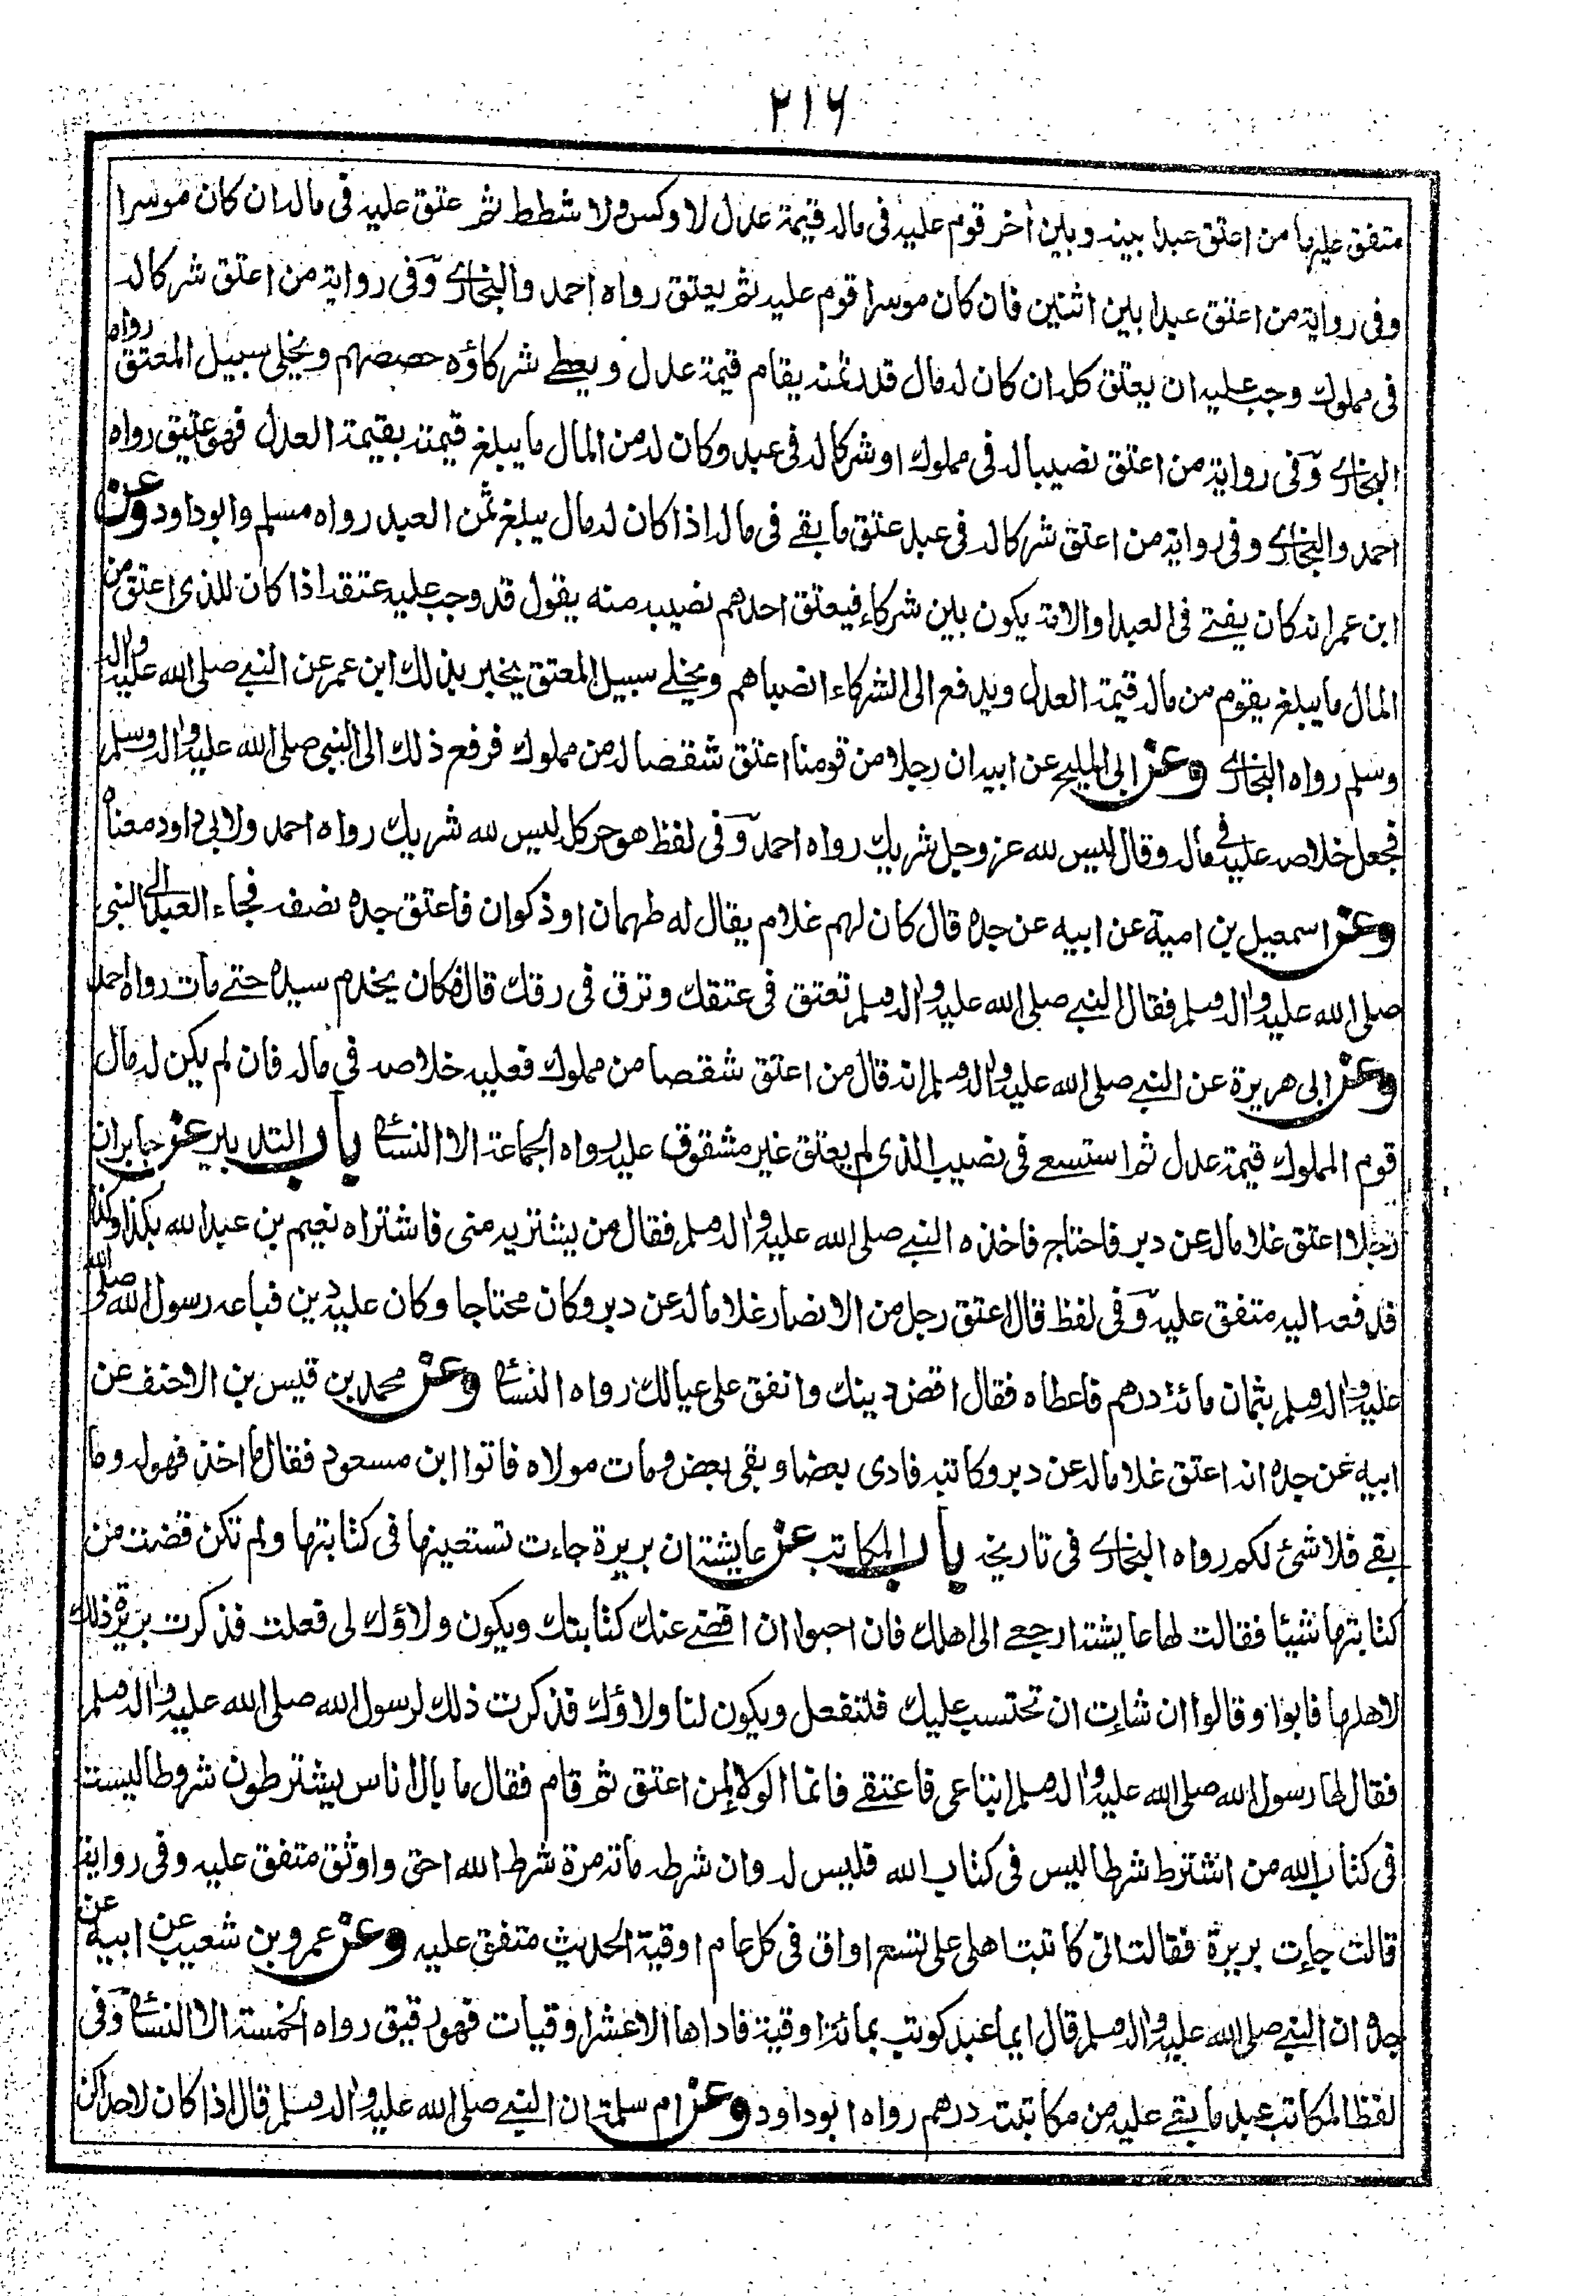 ٢١٦
متفق عليهما من اعتق عبدا بينه وبين أخر قوم عليه فى ماله قيمة عدل لا وكس ولا شطط ثم عتق عليه فى ماله ان كان موسرا
وفى رواية من اعتق عبدا بين اثنين فان كان موسرا قوم عليه ثم يعتق رواه احمد والبخارى وفى رواية من اعتق شركا له
فى مملوك وجب عليه ان يعتق كله ان كان له مال قدر ثمنه يقام قيمة عدل ويعطے شركاؤه حصصهم ويخلى سبيل المعتق رواه
البخارى وفى رواية من اعتق نصيبا له فى مملوك او شركا له فى عبد وكان له من المال ما يبلغ قيمته بقيمة العدل فهو عتيق رواه
احمد والبخارى وفى رواية من اعتق شركا له فى عبد عتق ما بقے فى ماله اذا كان له مال يبلغ ثمن العبد رواه مسلم وابو داود وعن
ابن عمر انه كان يفتے فى العبد او الامة يكون بين شركاء فيعتق احدهم نصيبه منه يقول قد وجب عليه عتقه اذا كان للذى اعتق من
المال ما يبلغ يقوم من ماله قيمة العدل ويدفع الى الشركاء انصباهم ويخلے سبيل المعتق يخبر بذلك ابن عمر عن النبے صلى الله عليه واله
وسلم رواه البخارى وعن ابى المليح عن ابيه ان رجلا من قومنا اعتق شقصا له من مملوك فرفع ذلك الى النبى صلى الله عليه واله وسلم
فجعل خلاصه عليه فى ماله وقال ليس لله عز وجل شريك رواه احمد وفى لفظ هو حر كله ليس لله شريك رواه احمد ولابى داود معناه
وعن اسمعيل بن امية عن ابيه عن جده قال كان لهم غلام يقال له طهمان او ذكوان فاعتق جده نصفه فجاء العبد الى النبى
صلى الله عليه واله وسلم فقال النبے صلى الله عليه واله وسلم تعتق فى عتقك وترق فى رقك قال فكان يخدم سيده حتے مات رواه احمد
وعن ابى هريرة عن النبے صلى الله عليه واله وسلم انه قال من اعتق شقصا من مملوك فعليه خلاصه فى ماله فان لم يكن له مال
قوم المملوك قيمة عدل ثم استسعے فى نصيب الذى لم يعتق غير مشقوق عليه رواه الجماعة الا النسائى باب التدبير عن جابر ان
رجلا اعتق غلاما له عن دبر فاحتاج فاخذه النبے صلى الله عليه واله وسلم فقال من يشتريه منى فاشتراه نعيم بن عبد الله بكذا وكذا
فدفعه اليه متفق عليه وفى لفظ قال اعتق رجل من الانصار غلاما له عن دبر وكان محتاجا وكان عليه دين فباعه رسول الله صلى الله
عليه واله وسلم بثمان مائة درهم فاعطاه فقال اقض دينك وانفق على عيالك رواه النسائى وعن محمد بن قيس بن الاحنف عن
ابيه عن جده انه اعتق غلاما له عن دبر وكاتبه فادى بعضا وبقى بعض ومات مولاه فاتوا ابن مسعود فقال ما اخذ فهو له وما
بقے فلا شئ لكم رواه البخارى فى تاريخه باب المكاتب عن عايشة ان بريرة جاءت تستعينها فى كتابتها ولم تكن قضت من
كتابتها شيئا فقالت لها عايشة ارجعے الى اهلك فان احبوا ان اقضے عنك كتابتك ويكون ولاؤك لى فعلت فذكرت بريرة ذلك
لاهلها فابوا وقالوا ان شاءت ان تحتسب عليك فلتفعل ويكون لنا ولاؤك فذكرت ذلك لرسول الله صلى الله عليه واله وسلم
فقال لها رسول الله صلى الله عليه واله وسلم ابتاعى فاعتقے فانما الولاء لمن اعتق ثم قام فقال ما بال اناس يشترطون شروطا ليست
فى كتاب الله من اشترط شرطا ليس فى كتاب الله فليس له وان شرطه مائة مرة شرط الله احق واوثق متفق عليه وفى رواية
قالت جاءت بريرة فقالت انى كاتبت اهلى على تسع اواق فى كل عام اوقية الحديث متفق عليه وعن عمرو بن شعيب عن ابيه عن
جده ان النبے صلى الله عليه واله وسلم قال ايما عبد كوتب بمائة اوقية فاداها الا عشر اوقيات فهو رقيق رواه الخمسة الا النسائى وفى
لفظ المكاتب عبد ما بقے عليه من مكاتبته درهم رواه ابو داود وعن ام سلمة ان النبے صلى الله عليه واله وسلم قال اذا كان لاحداكن